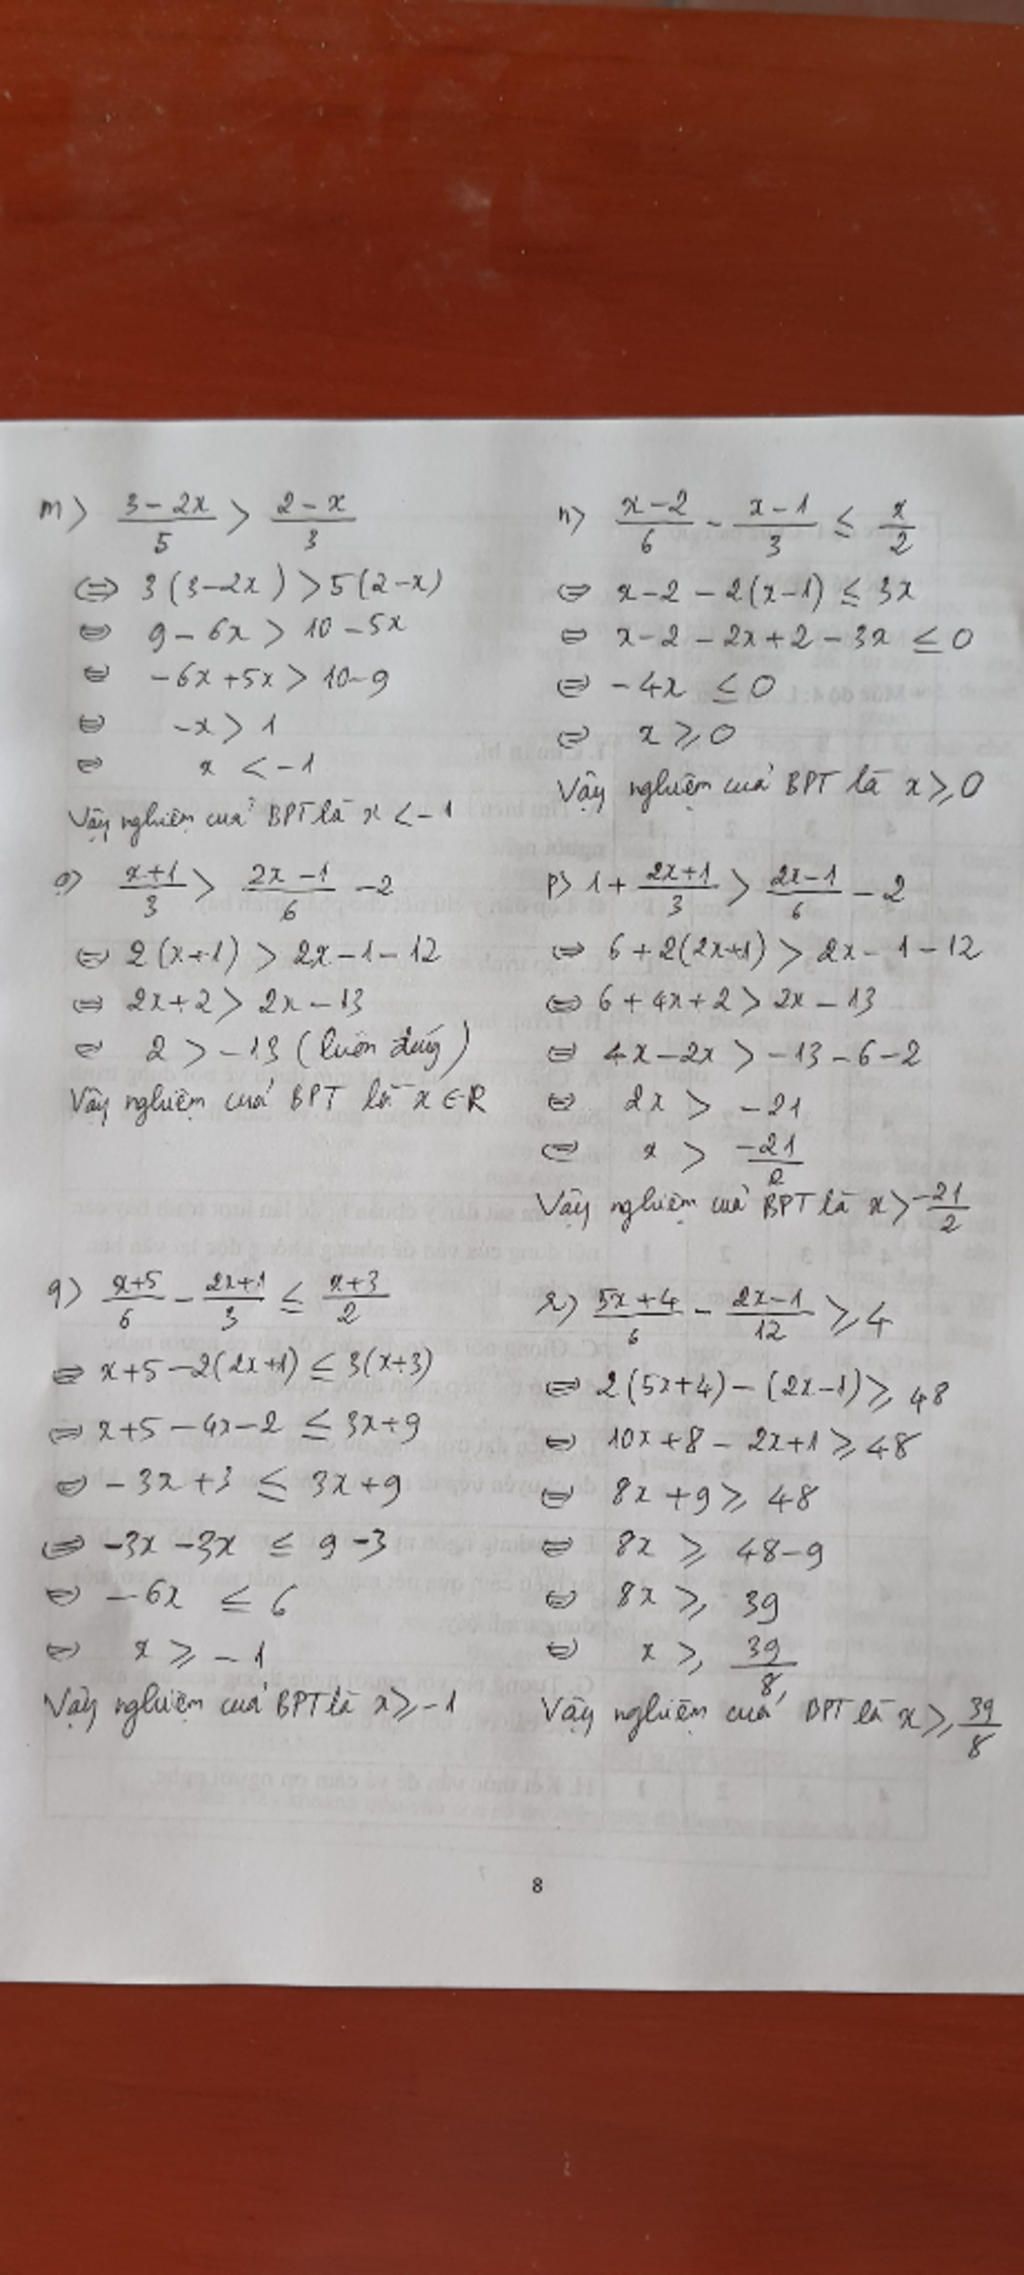 m) (3 - 2x)/5 > (2 - x)/3
⇔ 3(3 - 2x) > 5(2 - x)
⇔ 9 - 6x > 10 - 5x
⇔ -6x + 5x > 10 - 9
⇔ -x > 1
⇔ x < -1
Vậy nghiệm của BPT là x < -1
n) (x - 2)/6 - (x - 1)/3 ≤ x/2
⇔ x - 2 - 2(x - 1) ≤ 3x
⇔ x - 2 - 2x + 2 - 3x ≤ 0
⇔ -4x ≤ 0
⇔ x ≥ 0
Vậy nghiệm của BPT là x ≥ 0
o) (x + 1)/3 > (2x - 1)/6 - 2
⇔ 2(x + 1) > 2x - 1 - 12
⇔ 2x + 2 > 2x - 13
⇔ 2 > -13 (luôn đúng)
Vậy nghiệm của BPT là x ∈ R
p) 1 + (2x + 1)/3 > (2x - 1)/6 - 2
⇔ 6 + 2(2x + 1) > 2x - 1 - 12
⇔ 6 + 4x + 2 > 2x - 13
⇔ 4x - 2x > -13 - 6 - 2
⇔ 2x > -21
⇔ x > -21/2
Vậy nghiệm của BPT là x > -21/2
q) (x + 5)/6 - (2x + 1)/3 ≤ (x + 3)/2
⇔ x + 5 - 2(2x + 1) ≤ 3(x + 3)
⇔ x + 5 - 4x - 2 ≤ 3x + 9
⇔ -3x + 3 ≤ 3x + 9
⇔ -3x - 3x ≤ 9 - 3
⇔ -6x ≤ 6
⇔ x ≥ -1
Vậy nghiệm của BPT là x ≥ -1
r) (5x + 4)/6 - (2x - 1)/12 ≥ 4
⇔ 2(5x + 4) - (2x - 1) ≥ 48
⇔ 10x + 8 - 2x + 1 ≥ 48
⇔ 8x + 9 ≥ 48
⇔ 8x ≥ 48 - 9
⇔ 8x ≥ 39
⇔ x ≥ 39/8
Vậy nghiệm của BPT là x ≥ 39/8
8